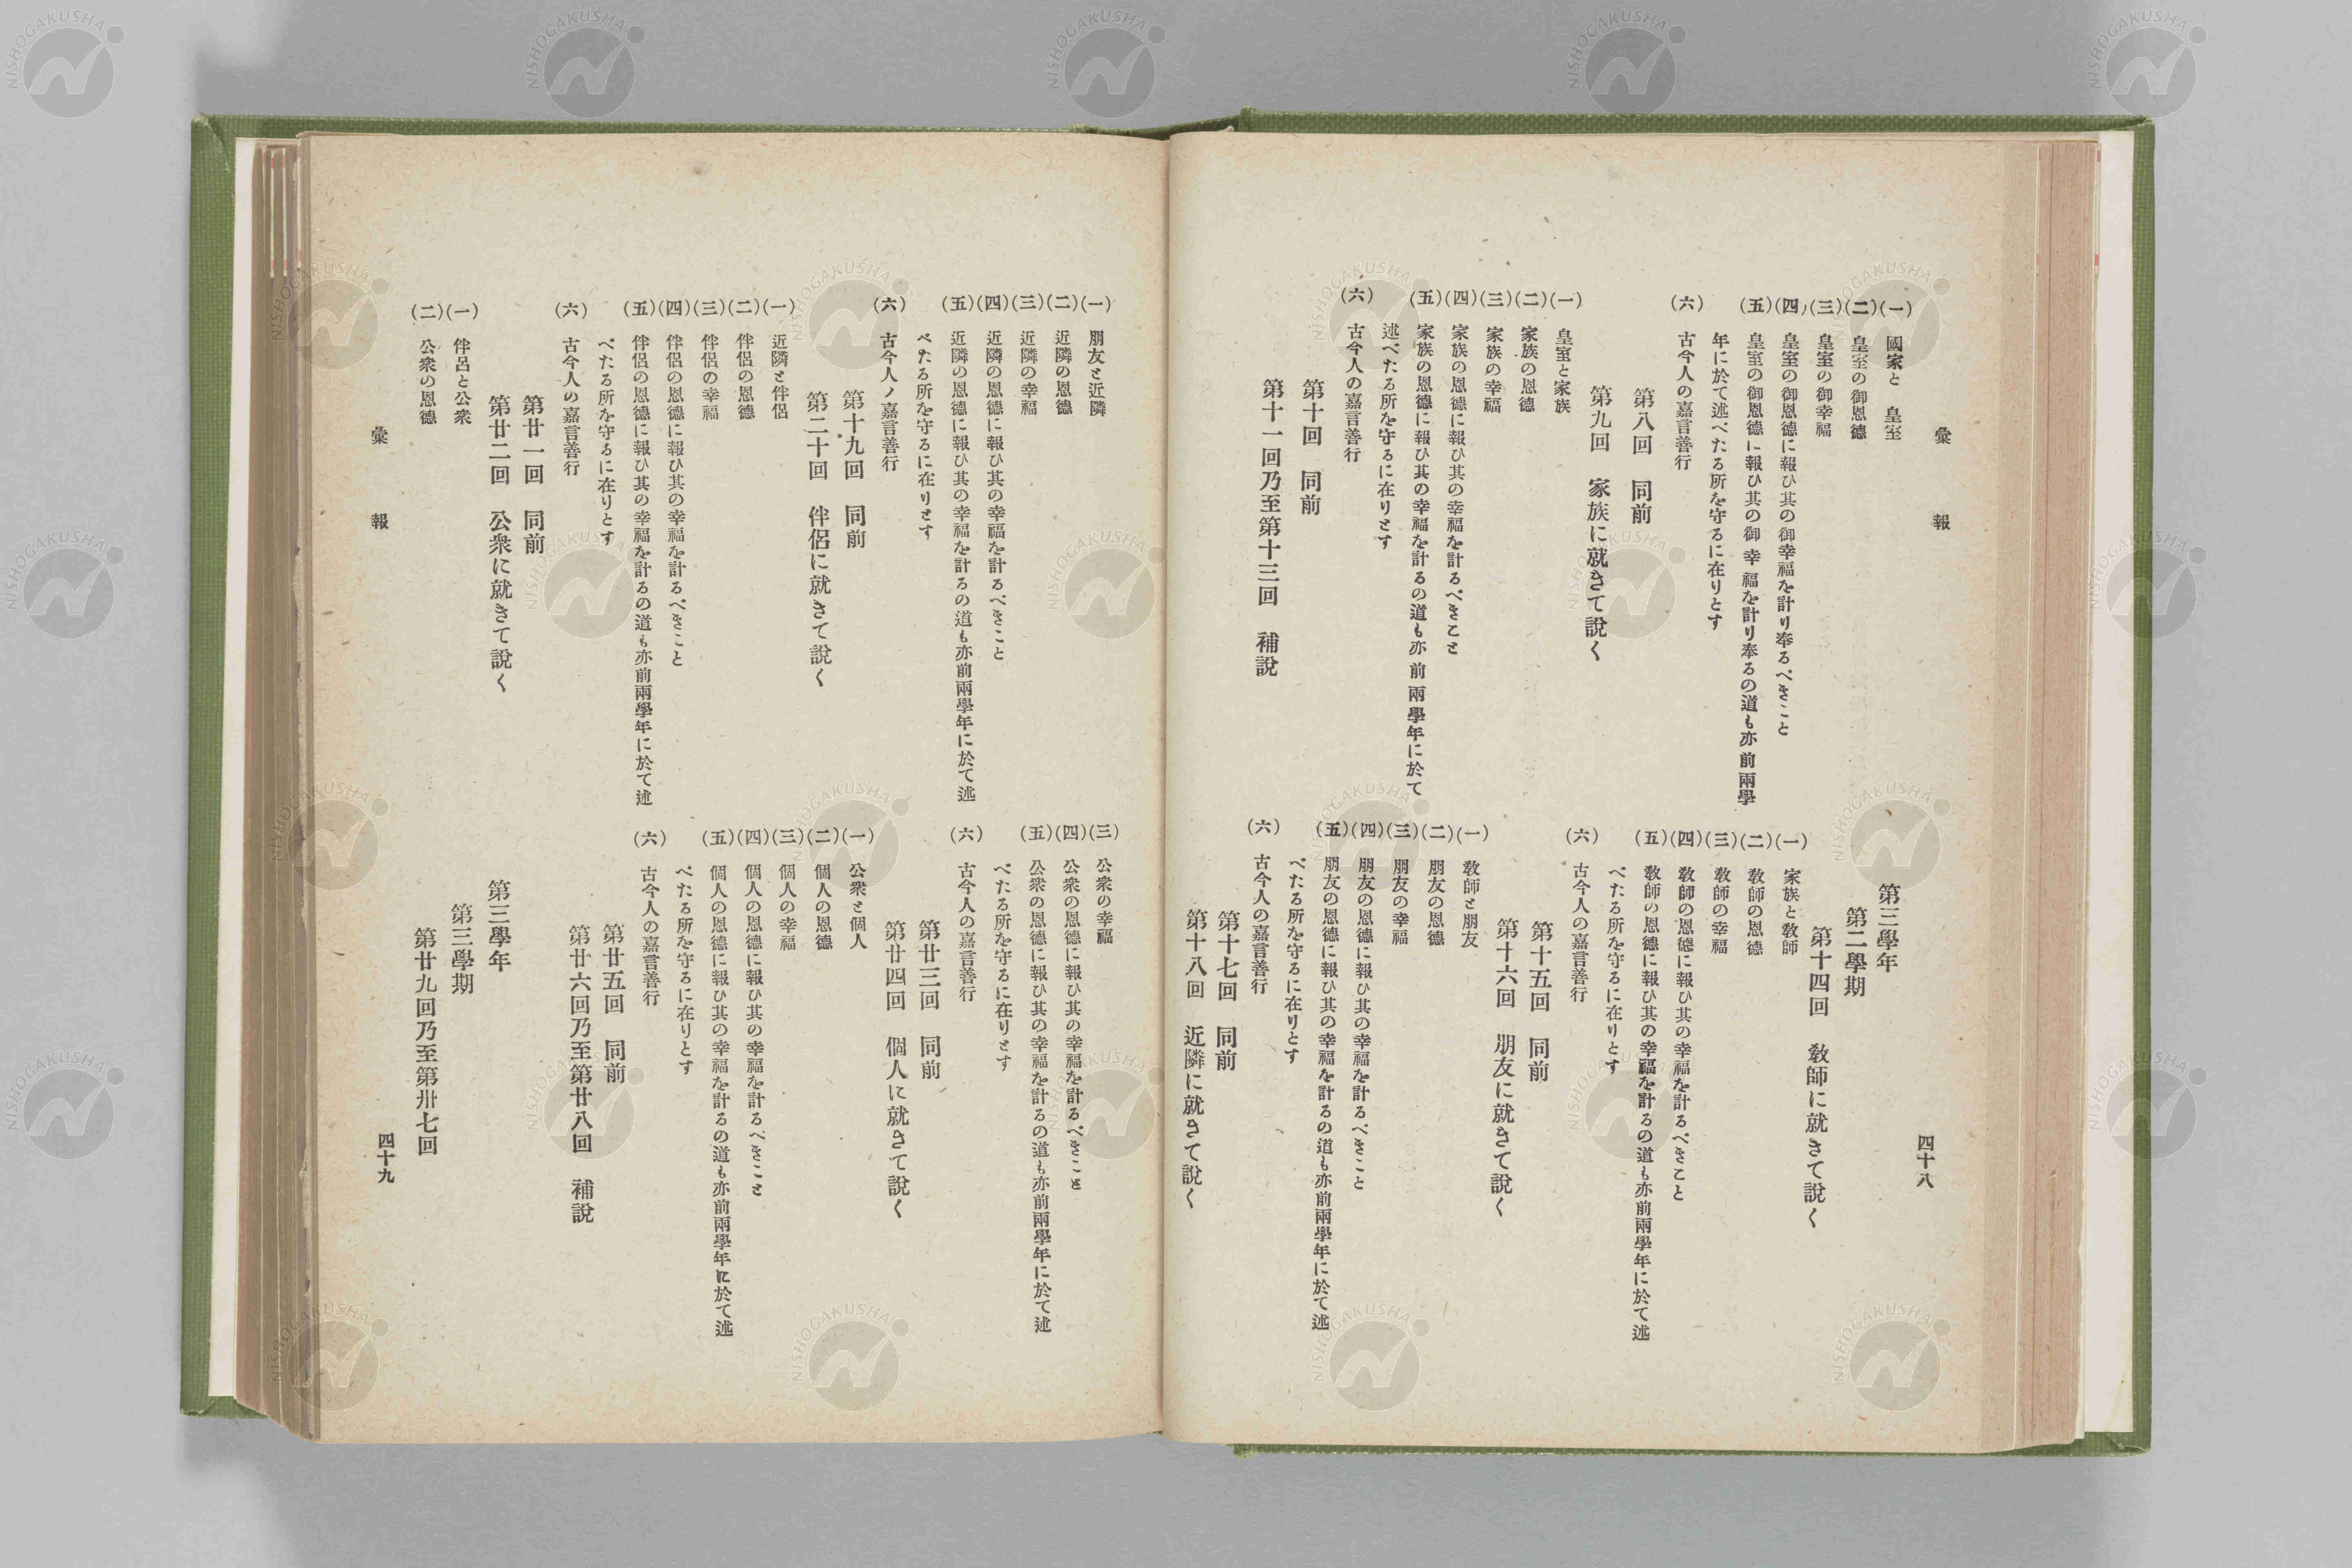 彙報
四十八
(一) 國家と皇室
(二) 皇室の御恩德
(三) 皇室の御幸福
(四) 皇室の御恩德に報ひ其の御幸福を計り奉るべきこと
(五) 皇室の御恩德に報ひ其の御幸福を計り奉るの道も亦前兩學
年に於て述べたる所を守るに在りとす
(六) 古今人の嘉言善行
第八回 同前
第九回 家族に就きて說く
(一) 皇室と家族
(二) 家族の恩德
(三) 家族の幸福
(四) 家族の恩德に報ひ其の幸福を計るべきこと
(五) 家族の恩德に報ひ其の幸福を計るの道も亦前兩學年に於て
述べたる所を守るに在りとす
(六) 古今人の嘉言善行
第十回 同前
第十一回乃至第十三回 補說
第三學年
第二學期
第十四回 敎師に就きて說く
(一) 家族と敎師
(二) 敎師の恩德
(三) 敎師の幸福
(四) 敎師の恩德に報ひ其の幸福を計るべきこと
(五) 敎師の恩德に報ひ其の幸福を計るの道も亦前兩學年に於て述
べたる所を守るに在りとす
(六) 古今人の嘉言善行
第十五回 同前
第十六回 朋友に就きて說く
(一) 敎師と朋友
(二) 朋友の恩德
(三) 朋友の幸福
(四) 朋友の恩德に報ひ其の幸福を計るべきこと
(五) 朋友の恩德に報ひ其の幸福を計るの道も亦前兩學年に於て述
べたる所を守るに在りとす
(六) 古今人の嘉言善行
第十七回 同前
第十八回 近隣に就きて說く
(一) 朋友と近隣
(二) 近隣の恩德
(三) 近隣の幸福
(四) 近隣の恩德に報ひ其の幸福を計るべきこと
(五) 近隣の恩德に報ひ其の幸福を計るの道も亦前兩學年に於て述
べたる所を守るに在りとす
(六) 古今人ノ嘉言善行
第十九回 同前
第二十回 伴侶に就きて說く
(一) 近隣と伴侶
(二) 伴侶の恩德
(三) 伴侶の幸福
(四) 伴侶の恩德に報ひ其の幸福を計るべきこと
(五) 伴侶の恩德に報ひ其の幸福を計るの道も亦前兩學年に於て述
べたる所を守るに在りとす
(六) 古今人の嘉言善行
第廿一回 同前
第廿二回 公衆に就きて說く
(一) 伴呂と公衆
(二) 公衆の恩德
(三) 公衆の幸福
(四) 公衆の恩德に報ひ其の幸福を計るべきこと
(五) 公衆の恩德に報ひ其の幸福を計るの道も亦前兩學年に於て述
べたる所を守るに在りとす
(六) 古今人の嘉言善行
第廿三回 同前
第廿四回 個人に就きて說く
(一) 公衆と個人
(二) 個人の恩德
(三) 個人の幸福
(四) 個人の恩德に報ひ其の幸福を計るべきこと
(五) 個人の恩德に報ひ其の幸福を計るの道も亦前兩學年に於て述
べたる所を守るに在りとす
(六) 古今人の嘉言善行
第廿五回 同前
第廿六回乃至第廿八回 補說
第三學年
第三學期
第廿九回乃至第卅七回
彙報
四十九
NISHOGAKUSHA